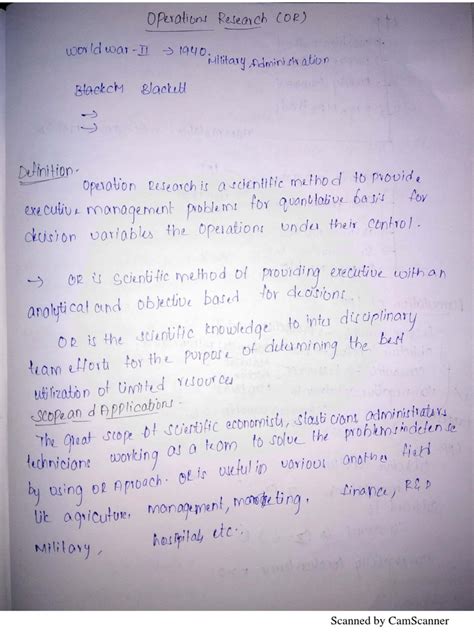 Operations Research (OR)
World war-II → 1940.
Military Administration
BlackCM Blackett
→
→
Definition.
Operation Research is a scientific method to provide
executive management problems for quantitative basis for
decision variables the operations under their control.
→ OR is Scientific method of providing executive with an
analytical and objective based for decisions.
OR is the scientific knowledge to inter disciplinary
team efforts for the purpose of determining the best
utilization of limited resources
Scope and Applications.
The great scope of scientific economists, administrators
technicians working as a team to solve the problems in defense
by using OR Aproach. OR is useful in various another field
lik agriculture, management, marketing, finance, R&D
Military, hospitals, etc..
Scanned by CamScanner